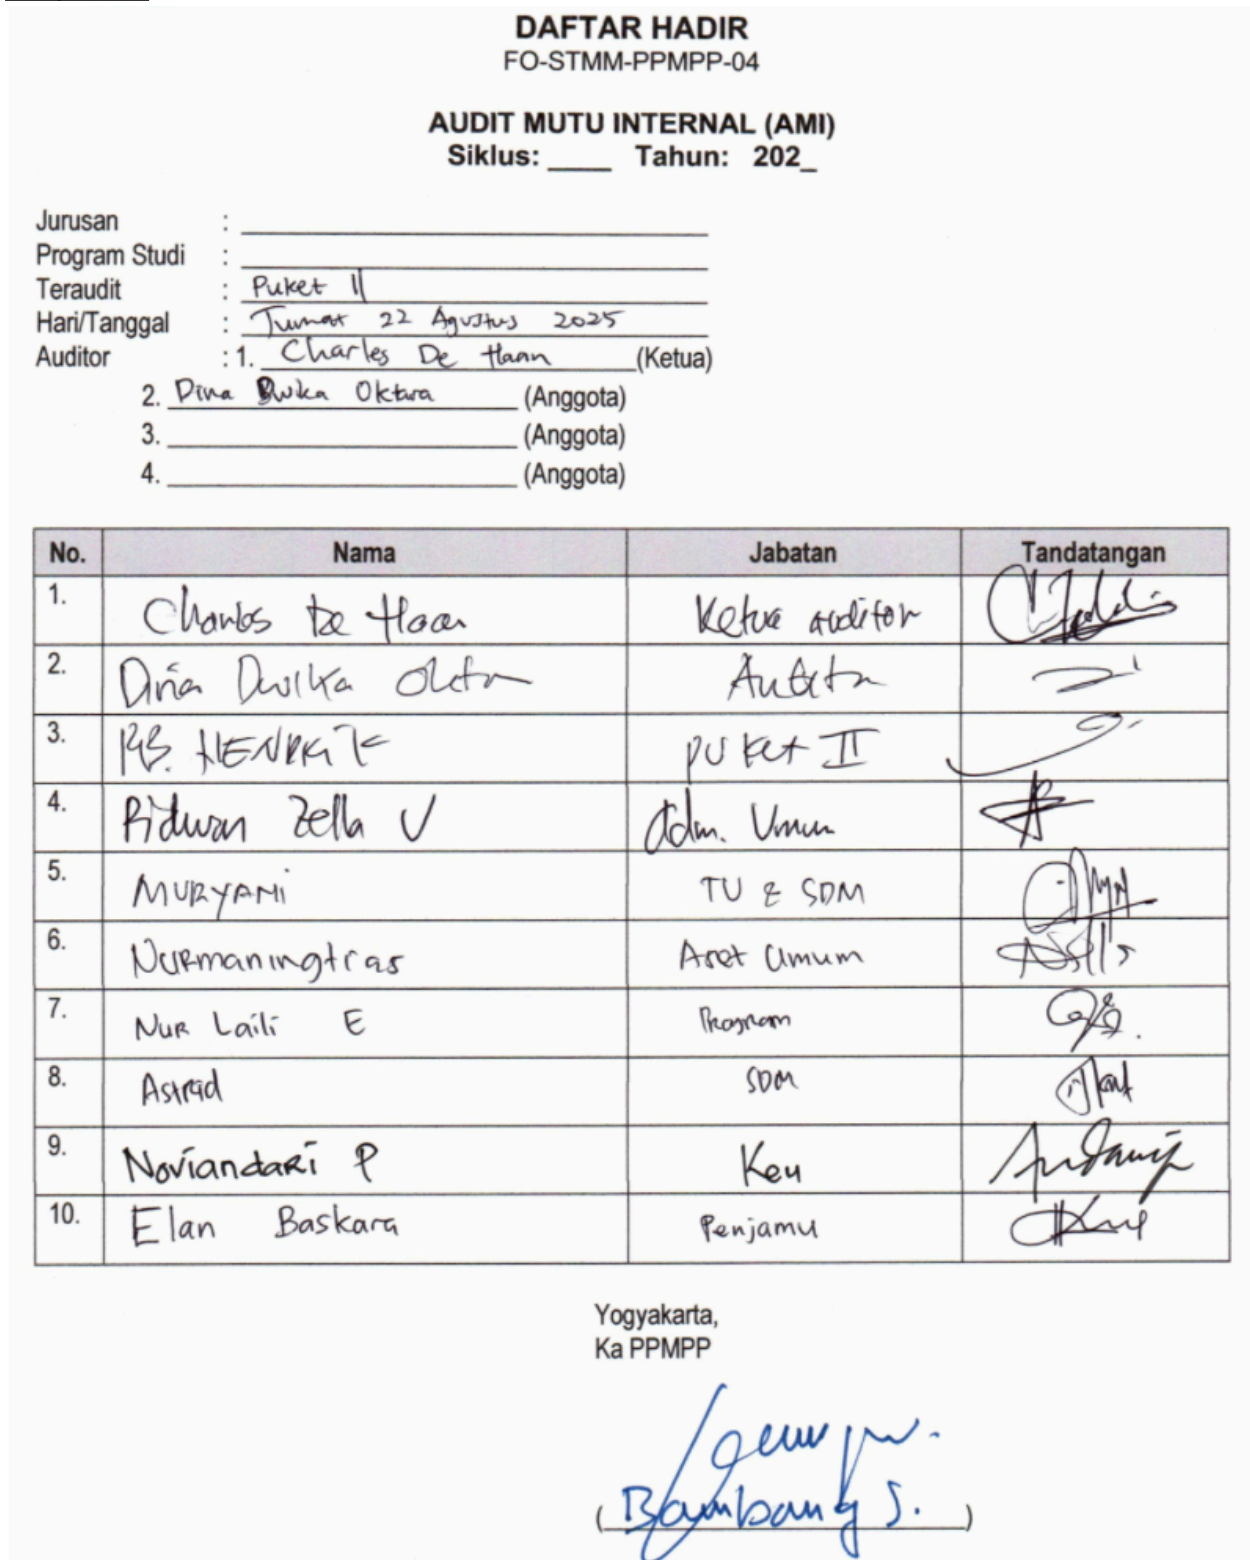 DAFTAR HADIR
FO-STMM-PPMPP-04
AUDIT MUTU INTERNAL (AMI)
Siklus: ____ Tahun: 202_
Jurusan :
Program Studi :
Teraudit : Puket II
Hari/Tanggal : Jumat 22 Agustus 2025
Auditor : 1. Charles De Haan (Ketua)
2. Dina Dwika Oktora (Anggota)
3. (Anggota)
4. (Anggota)
No. Nama Jabatan Tandatangan
1. Charles De Haan Ketua auditor
2. Dina Dwika
3. PUKET II
4. Ridwan Zella V Adm. Umum
5. MURYAMI TU & SDM
6. Nurmaningtias Aset Umum
7. Nur Laili E Program
8. Astrid SDM
9. Noviandari P Keu
10. Elan Baskara Penjamu
Yogyakarta,
Ka PPMPP
(Bambang S.)